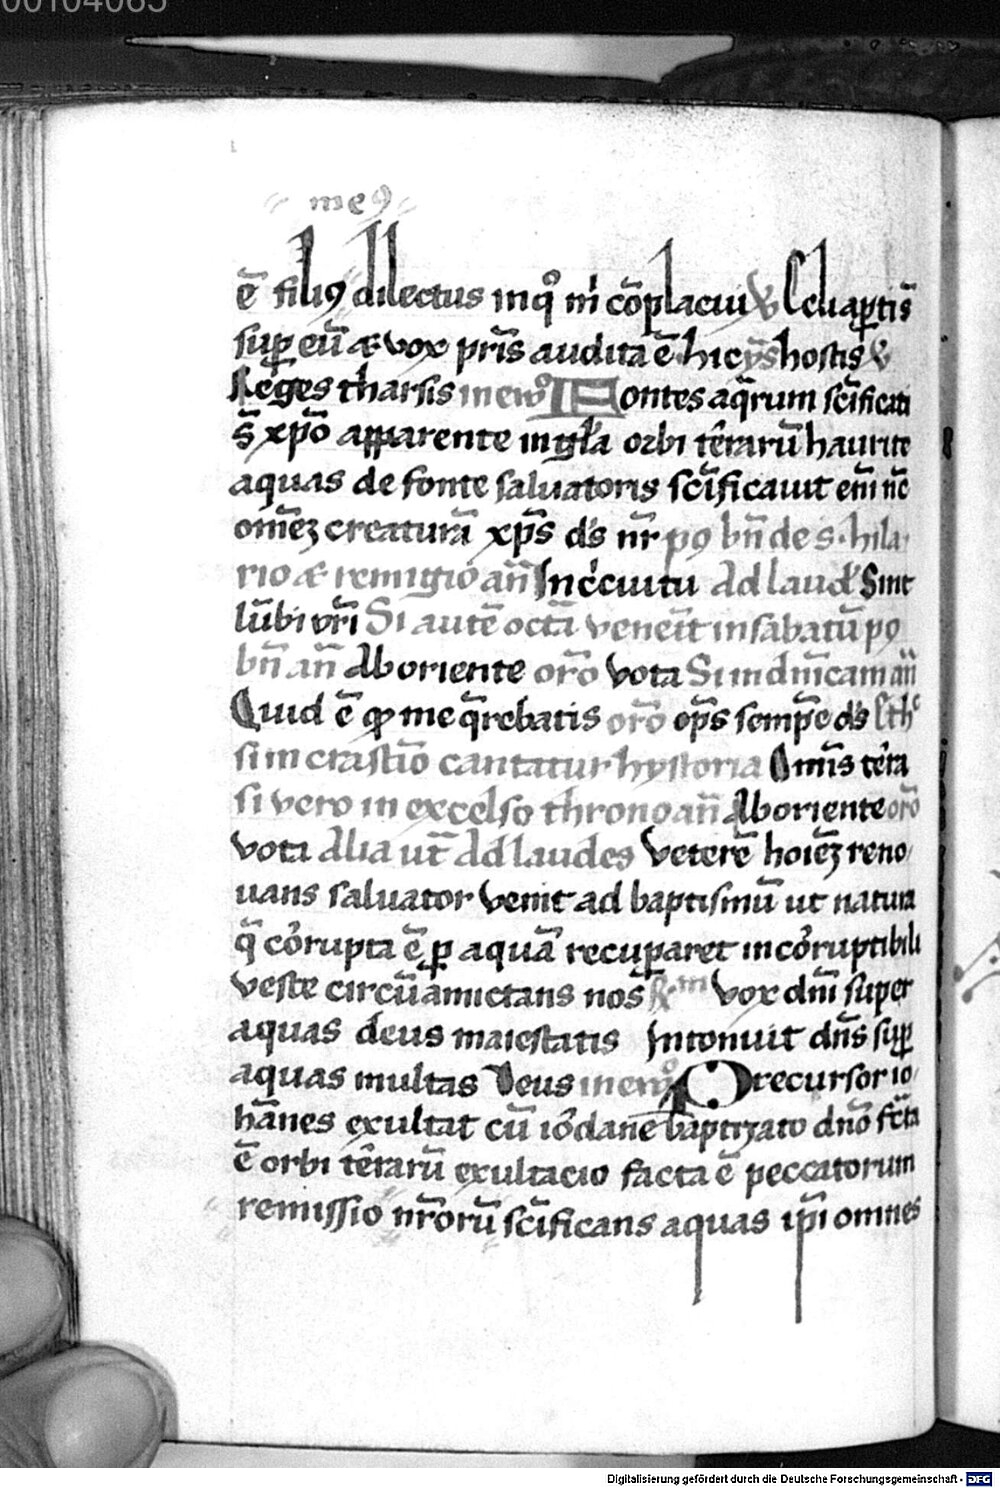 00104085
me᷒
ē filiꝰ dilectus in qͦ m̄ cōplacui ℣ Celi aꝑti s̄
suꝑ eū & vox pr̄is audita ē hic ẏs hostis ℣
Reges tharsis in euͦ Fontes aq̄rum sc̄ificati
s̄ xp̄o apparente in gl̄a orbi t̄rarū haurite
aquas de fonte saluatoris sc̄ificauit em̄ nc̄
om̄eꝫ creaturā xp̄s ds̄ nr̄ pꝰ bn̄ de s. hila
rio & remigio an̄ In c̄cuitu Ad laud̄ Sint
lūbi vr̄i Si autē octā veneīt in sabatū pꝰ
bn̄ an̄ Ab oriente or̄o vota Si in dn̄icam an̄
Quid ē ꝙ me q̄rebatis or̄o op̄s semp̄e ds̄
si in crastīo cantatur hystoria Omīs t̄ra
si vero in excelso throno an̄ Ab oriente or̄o
vota Alia ut̄ Ad laudes Veterē hoīeꝫ reno
uans saluator venit ad baptismū ut natura
q̄ cōrupta ē ꝑ aquā recuꝑaret incōruptibili
veste circūamictans nos Rm Vox dn̄i super
aquas deus maiestatis Intonuit dn̄s suꝑ
aquas multas Deus in euͦ Precursor io
hānes exultat cū iōdane baptizato dn̄o fc̄ta
ē orbi t̄rarū exultacio facta ē peccatorum
remissio nr̄orū sc̄ificans aquas ip̄i omnes
Digitalisierung gefördert durch die Deutsche Forschungsgemeinschaft - DFG